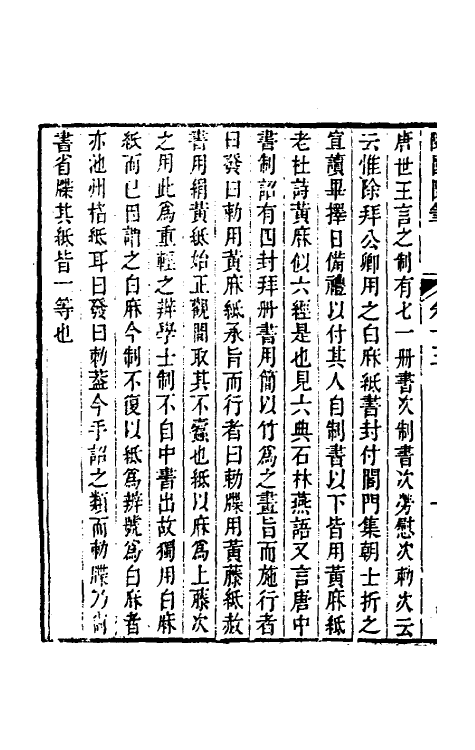 唐世王言之制有七一册書次制書次勞慰次勅次云
云惟除拜公卿用之白麻紙書封付閤門集朝士折之
宣讀畢擇日備禮以付其人自制書以下皆用黃麻紙
老杜詩黃麻似六經是也見六典石林燕語又言唐中
書制詔有四封拜册書用簡以竹爲之畫旨而施行者
曰發曰勅用黃麻紙承旨而行者曰勅牒用黃藤紙赦
書用絹黃紙始正觀間取其不蠹也紙以麻爲上藤次
之用此爲重輕之辯學士制不自中書出故獨用白麻
紙而已因謂之白麻今制不復以紙爲辯號爲白麻者
亦池州楮紙耳曰發曰勅蓋今手詔之類而勅牒乃尚
書省牒其紙皆一等也